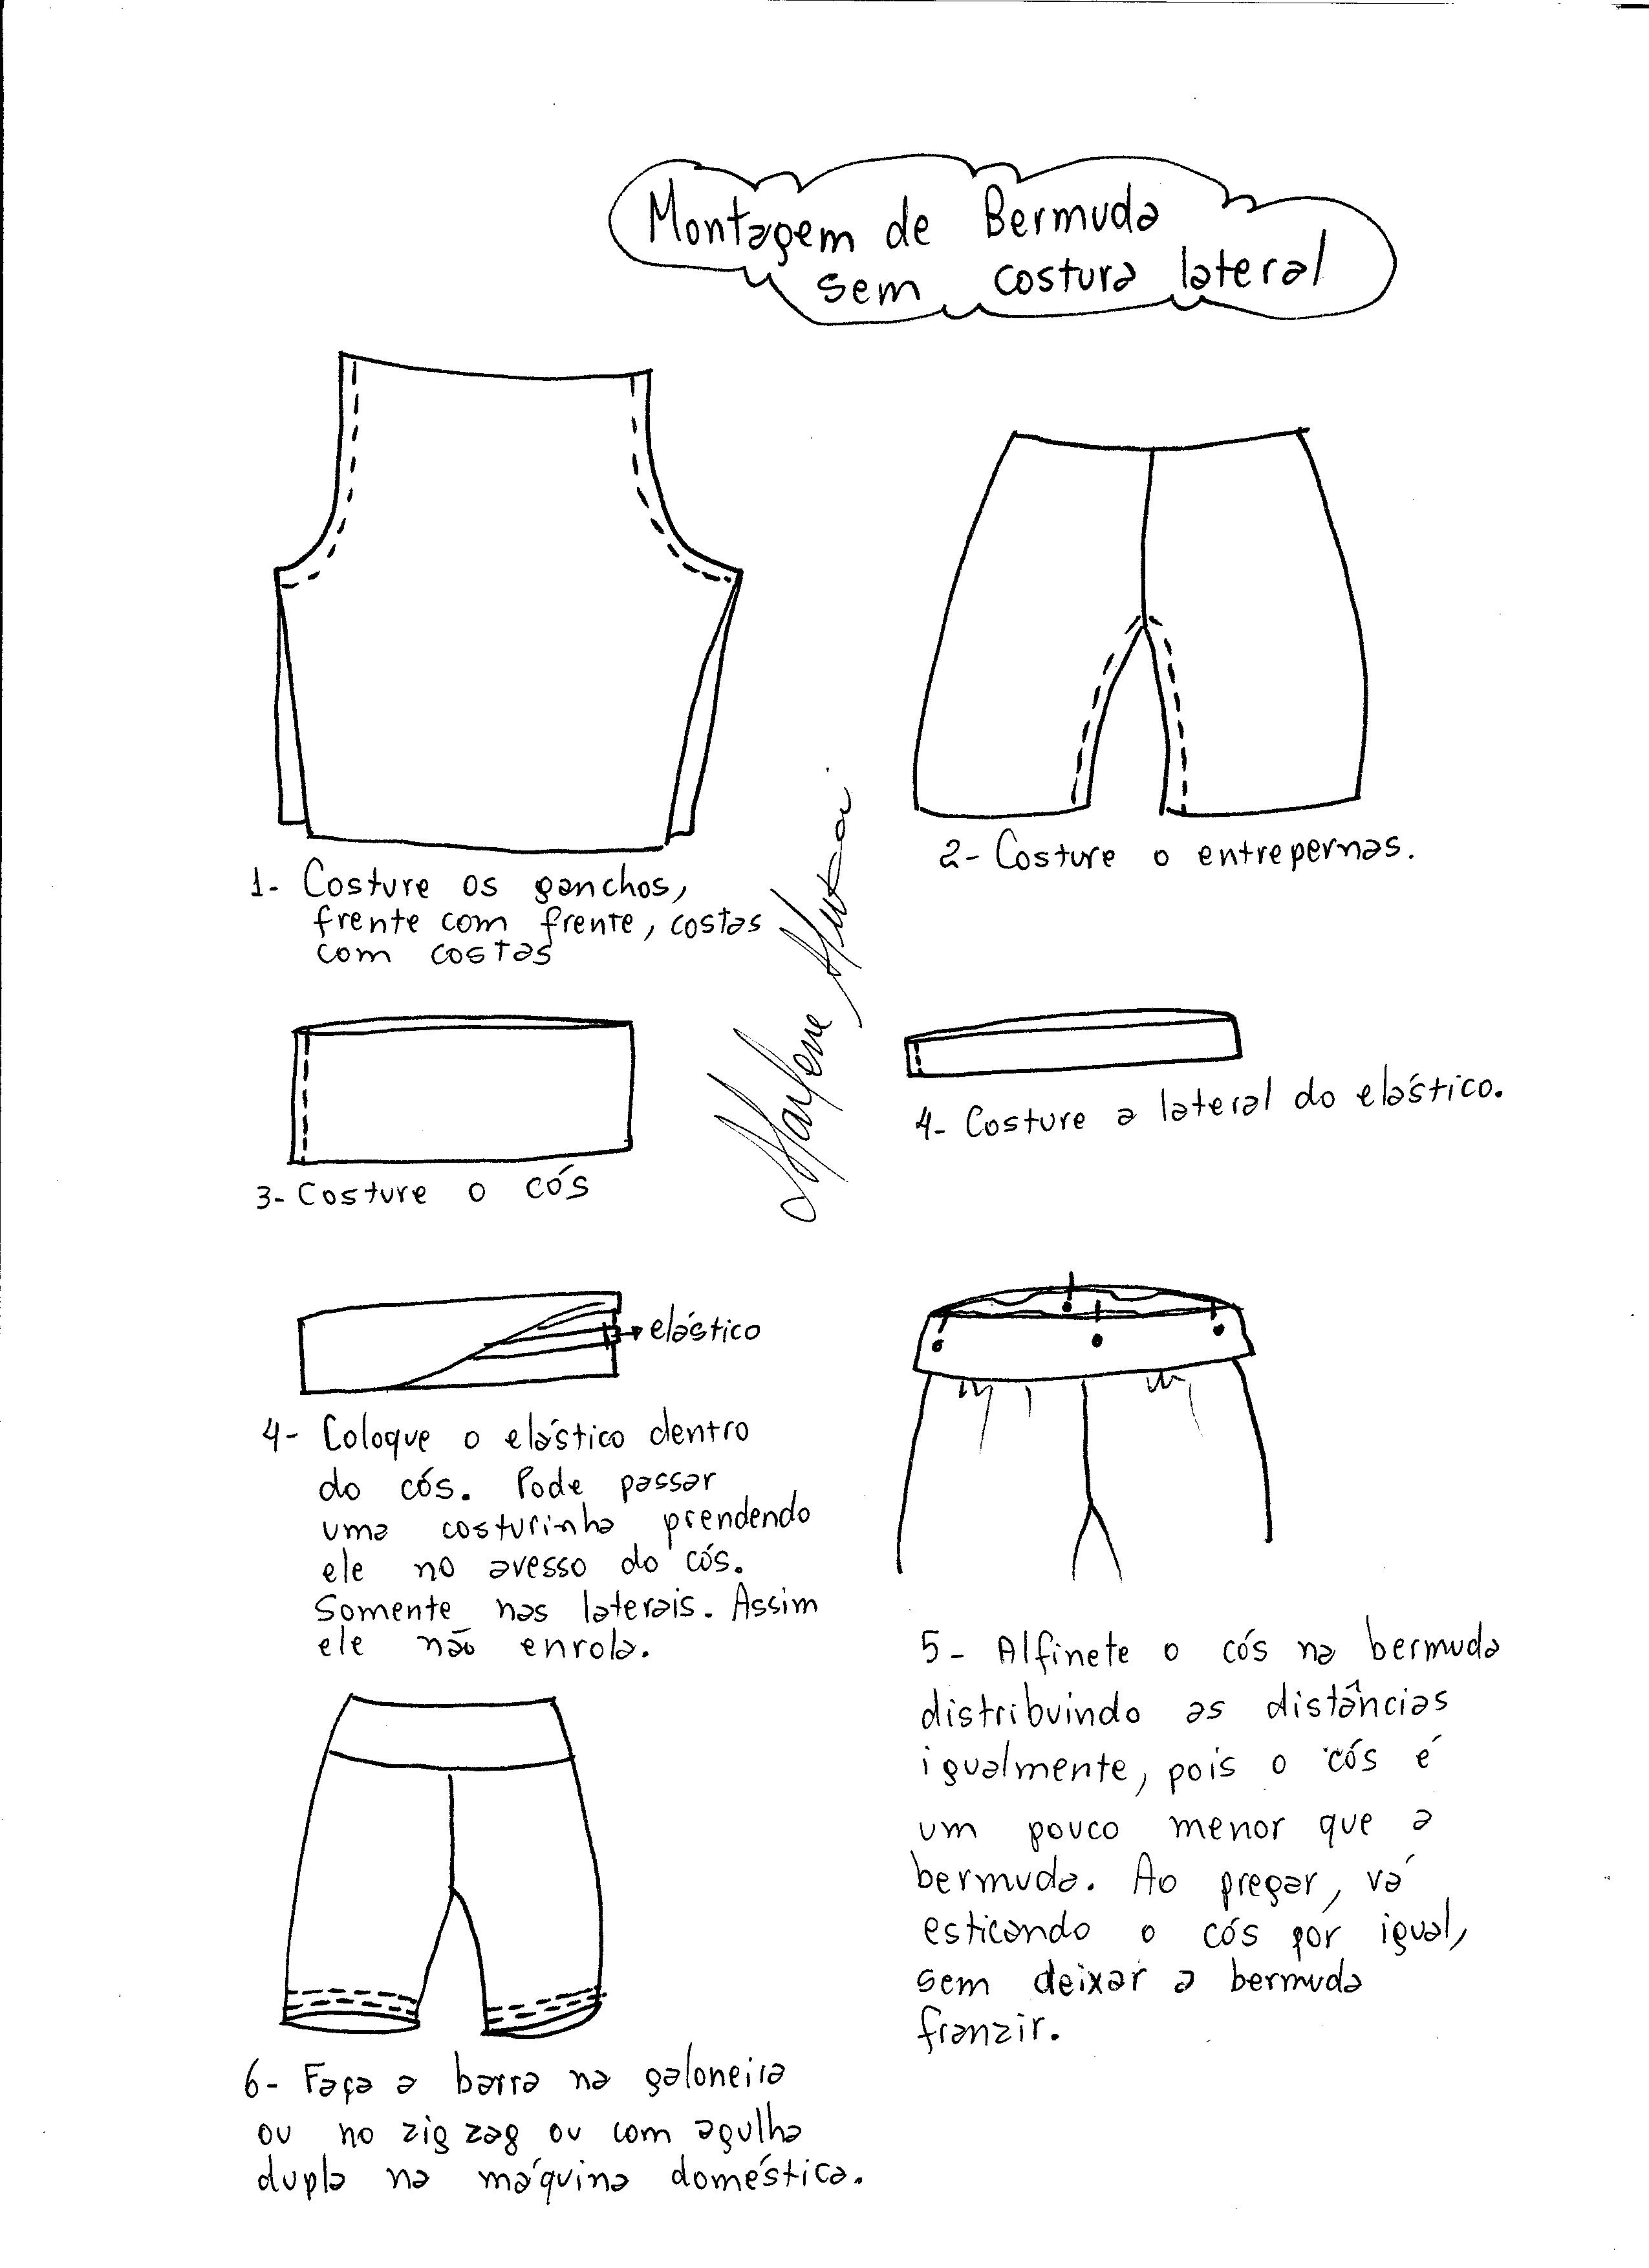 Montagem de Bermuda
sem costura lateral
1- Costure os ganchos,
frente com frente, costas
com costas
2- Costure o entrepernas.
3- Costure o cós
4- Costure a lateral do elástico.
elástico
4- Coloque o elástico dentro
do cós. Pode passar
uma costurinha prendendo
ele no avesso do cós.
Somente nas laterais. Assim
ele não enrola.
5- Alfinete o cós na bermuda
distribuindo as distâncias
igualmente, pois o cós é
um pouco menor que a
bermuda. Ao pregar, vá
esticando o cós por igual,
sem deixar a bermuda
franzir.
6- Faça a barra na galoneira
ou no zig zag ou com agulha
dupla na máquina doméstica.
Marlene Mukai